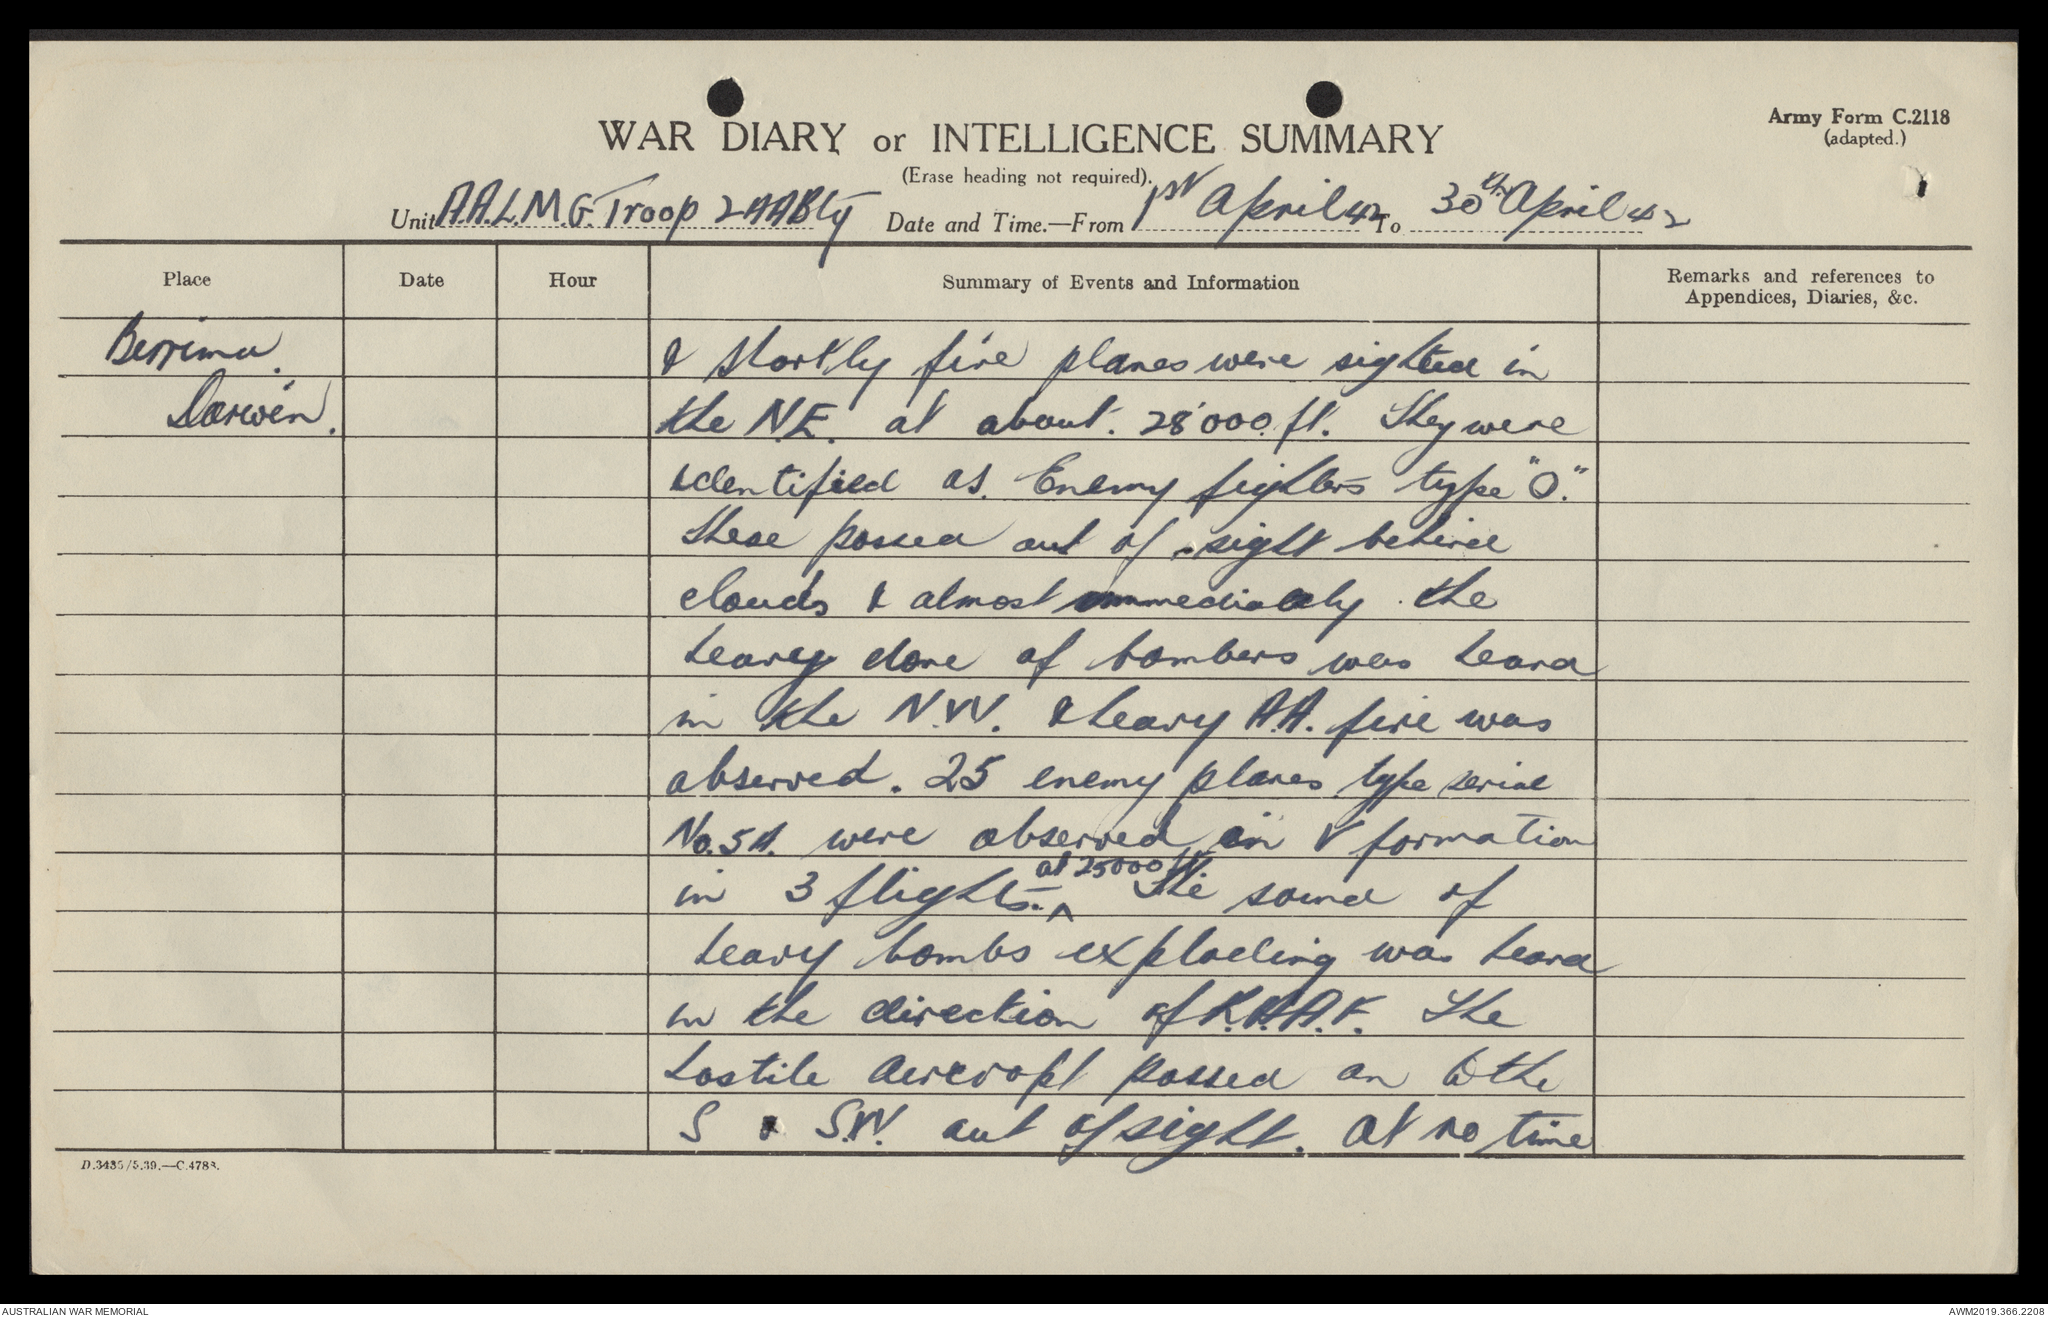 Army Form C.2118
(adapted.)
WAR DIARY or INTELLIGENCE SUMMARY
(Erase heading not required).
Unit A.A.L.M.G. Troop 2 AA Bty Date and Time.—From 1st April 42 To 30th April 42
Place Date Hour Summary of Events and Information Remarks and references to
Appendices, Diaries, &c.
Berrima.
Darwin.
& shortly five planes were sighted in
the N.E. at about. 28000 ft. They were
identified as. Enemy fighters type "O".
These passed out of sight behind
clouds & almost immediately the
heavy dore of bombers was heard
in the N.W. & heavy A.A. fire was
observed. 25 enemy planes type serial
No. 5A. were observed in V formation
in 3 flights. at 25000 ft. The sound of
heavy bombs exploding was heard
in the direction of R.A.A.F. The
hostile aircraft passed on to the
S & S.W. out of sight. At no time
D.3435/5.39.—C.4788.
AUSTRALIAN WAR MEMORIAL
AWM2019.366.2208